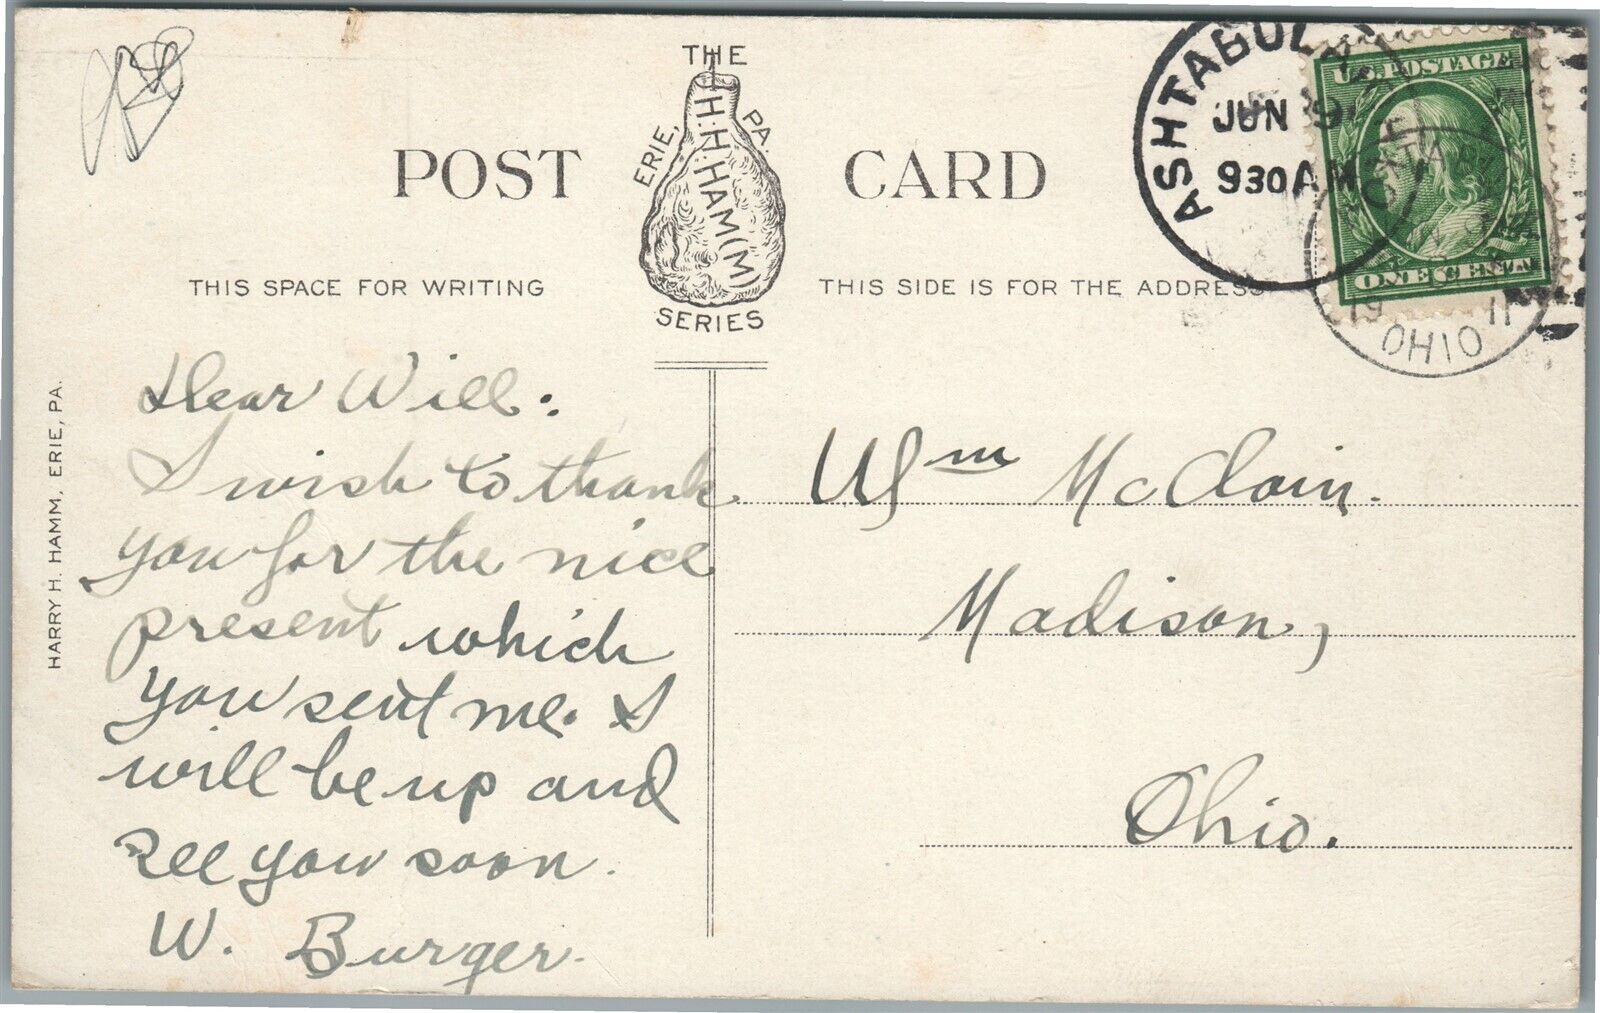 THE
H.H.HAM(M)
ERIE, PA.
SERIES
POST CARD
THIS SPACE FOR WRITING
THIS SIDE IS FOR THE ADDRESS
HARRY H. HAMM, ERIE, PA.
ASHTABULA
JUN 9
930AM
U.S. POSTAGE
ONE CENT
19 11
OHIO
Dear Will:
I wish to thank
you for the nice
present which
you sent me. I
will be up and
see you soon.
W. Burger.
Wm McClain.
Madison,
Ohio.